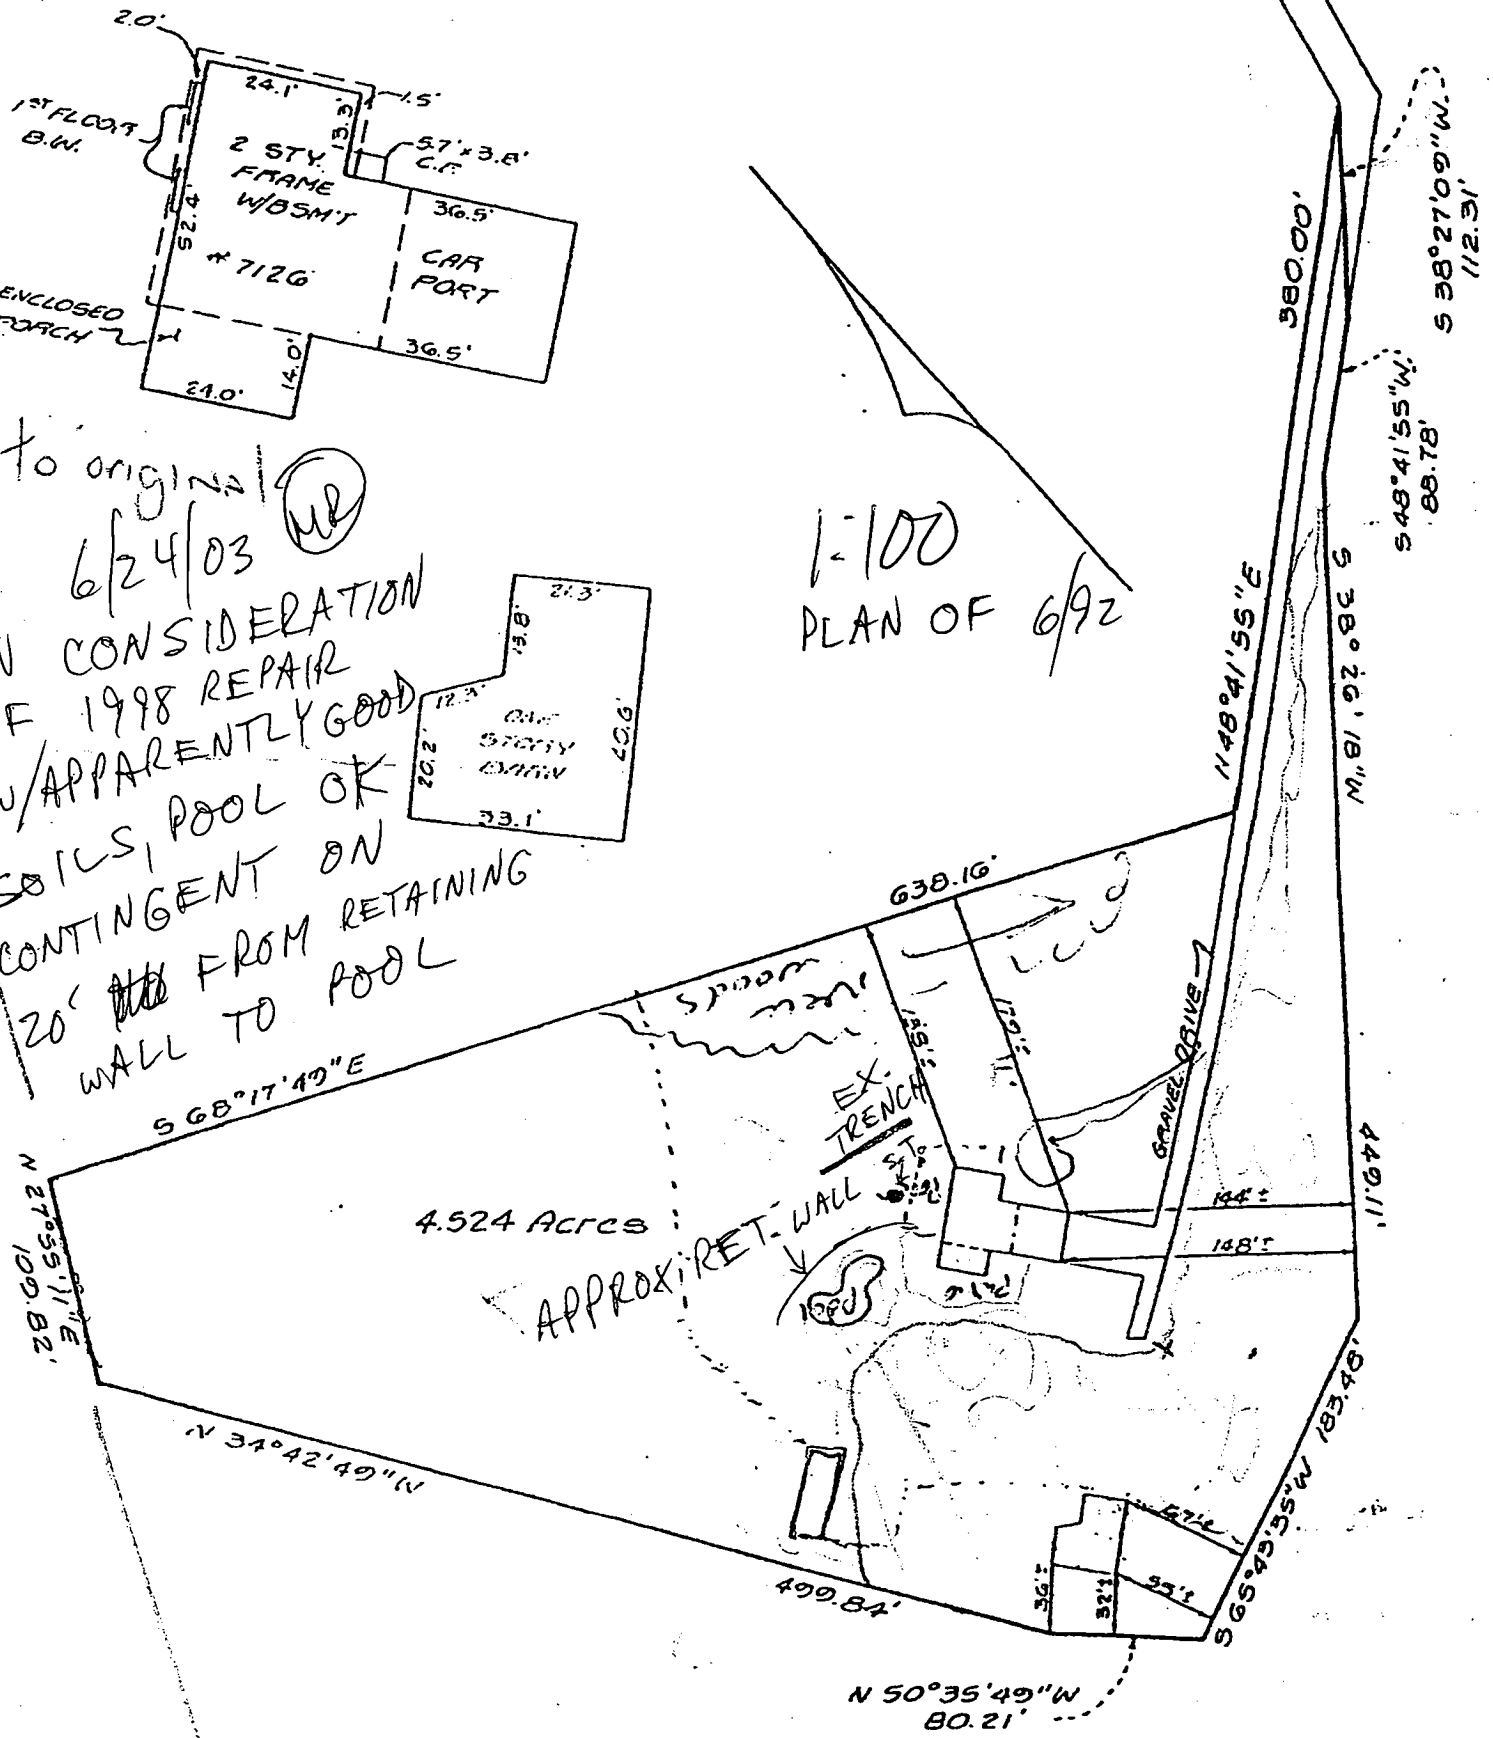 2.0'
24.1'
1.5'
1ST FLOOR
B.W.
13.3'
5.7' x 3.8'
2 STY.
FRAME
W/BSM'T
52.4'
36.5'
# 7126
CAR
PORT
ENCLOSED
PORCH
14.0'
36.5'
24.0'
to original
MR
6/24/03
CONSIDERATION
1998 REPAIR
W/APPARENTLY GOOD
SOILS, POOL OK
CONTINGENT ON
20' FROM RETAINING
WALL TO POOL
21.3'
13.8'
12.3'
ONE
STORY
BARN
20.2'
40.6'
33.1'
1=100
PLAN OF 6/92
S 38°27'09" W.
112.31'
S 48°41'55" W.
88.78'
380.00'
N 48°41'55" E
S 38°26'18" W
449.11'
638.16'
S 68°17'49" E
woods
158'±
179'±
GRAVEL DRIVE
EX.
TRENCH
S.T.
144'±
148'±
4.524 Acres
APPROX. RET. WALL
Pool
N 27°55'11" E
109.82'
N 34°42'49" W
499.84'
183.48'
S 65°43'35" W
67'±
55'±
36'±
32'±
N 50°35'49" W
80.21'